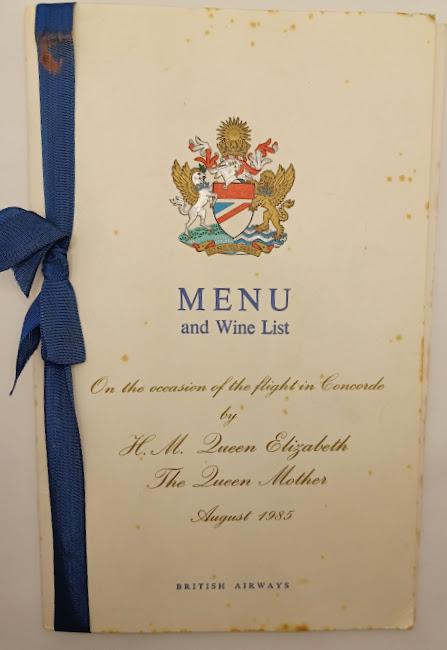 MENU
and Wine List
On the occasion of the flight in Concorde
by
H. M. Queen Elizabeth
The Queen Mother
August 1985
BRITISH AIRWAYS